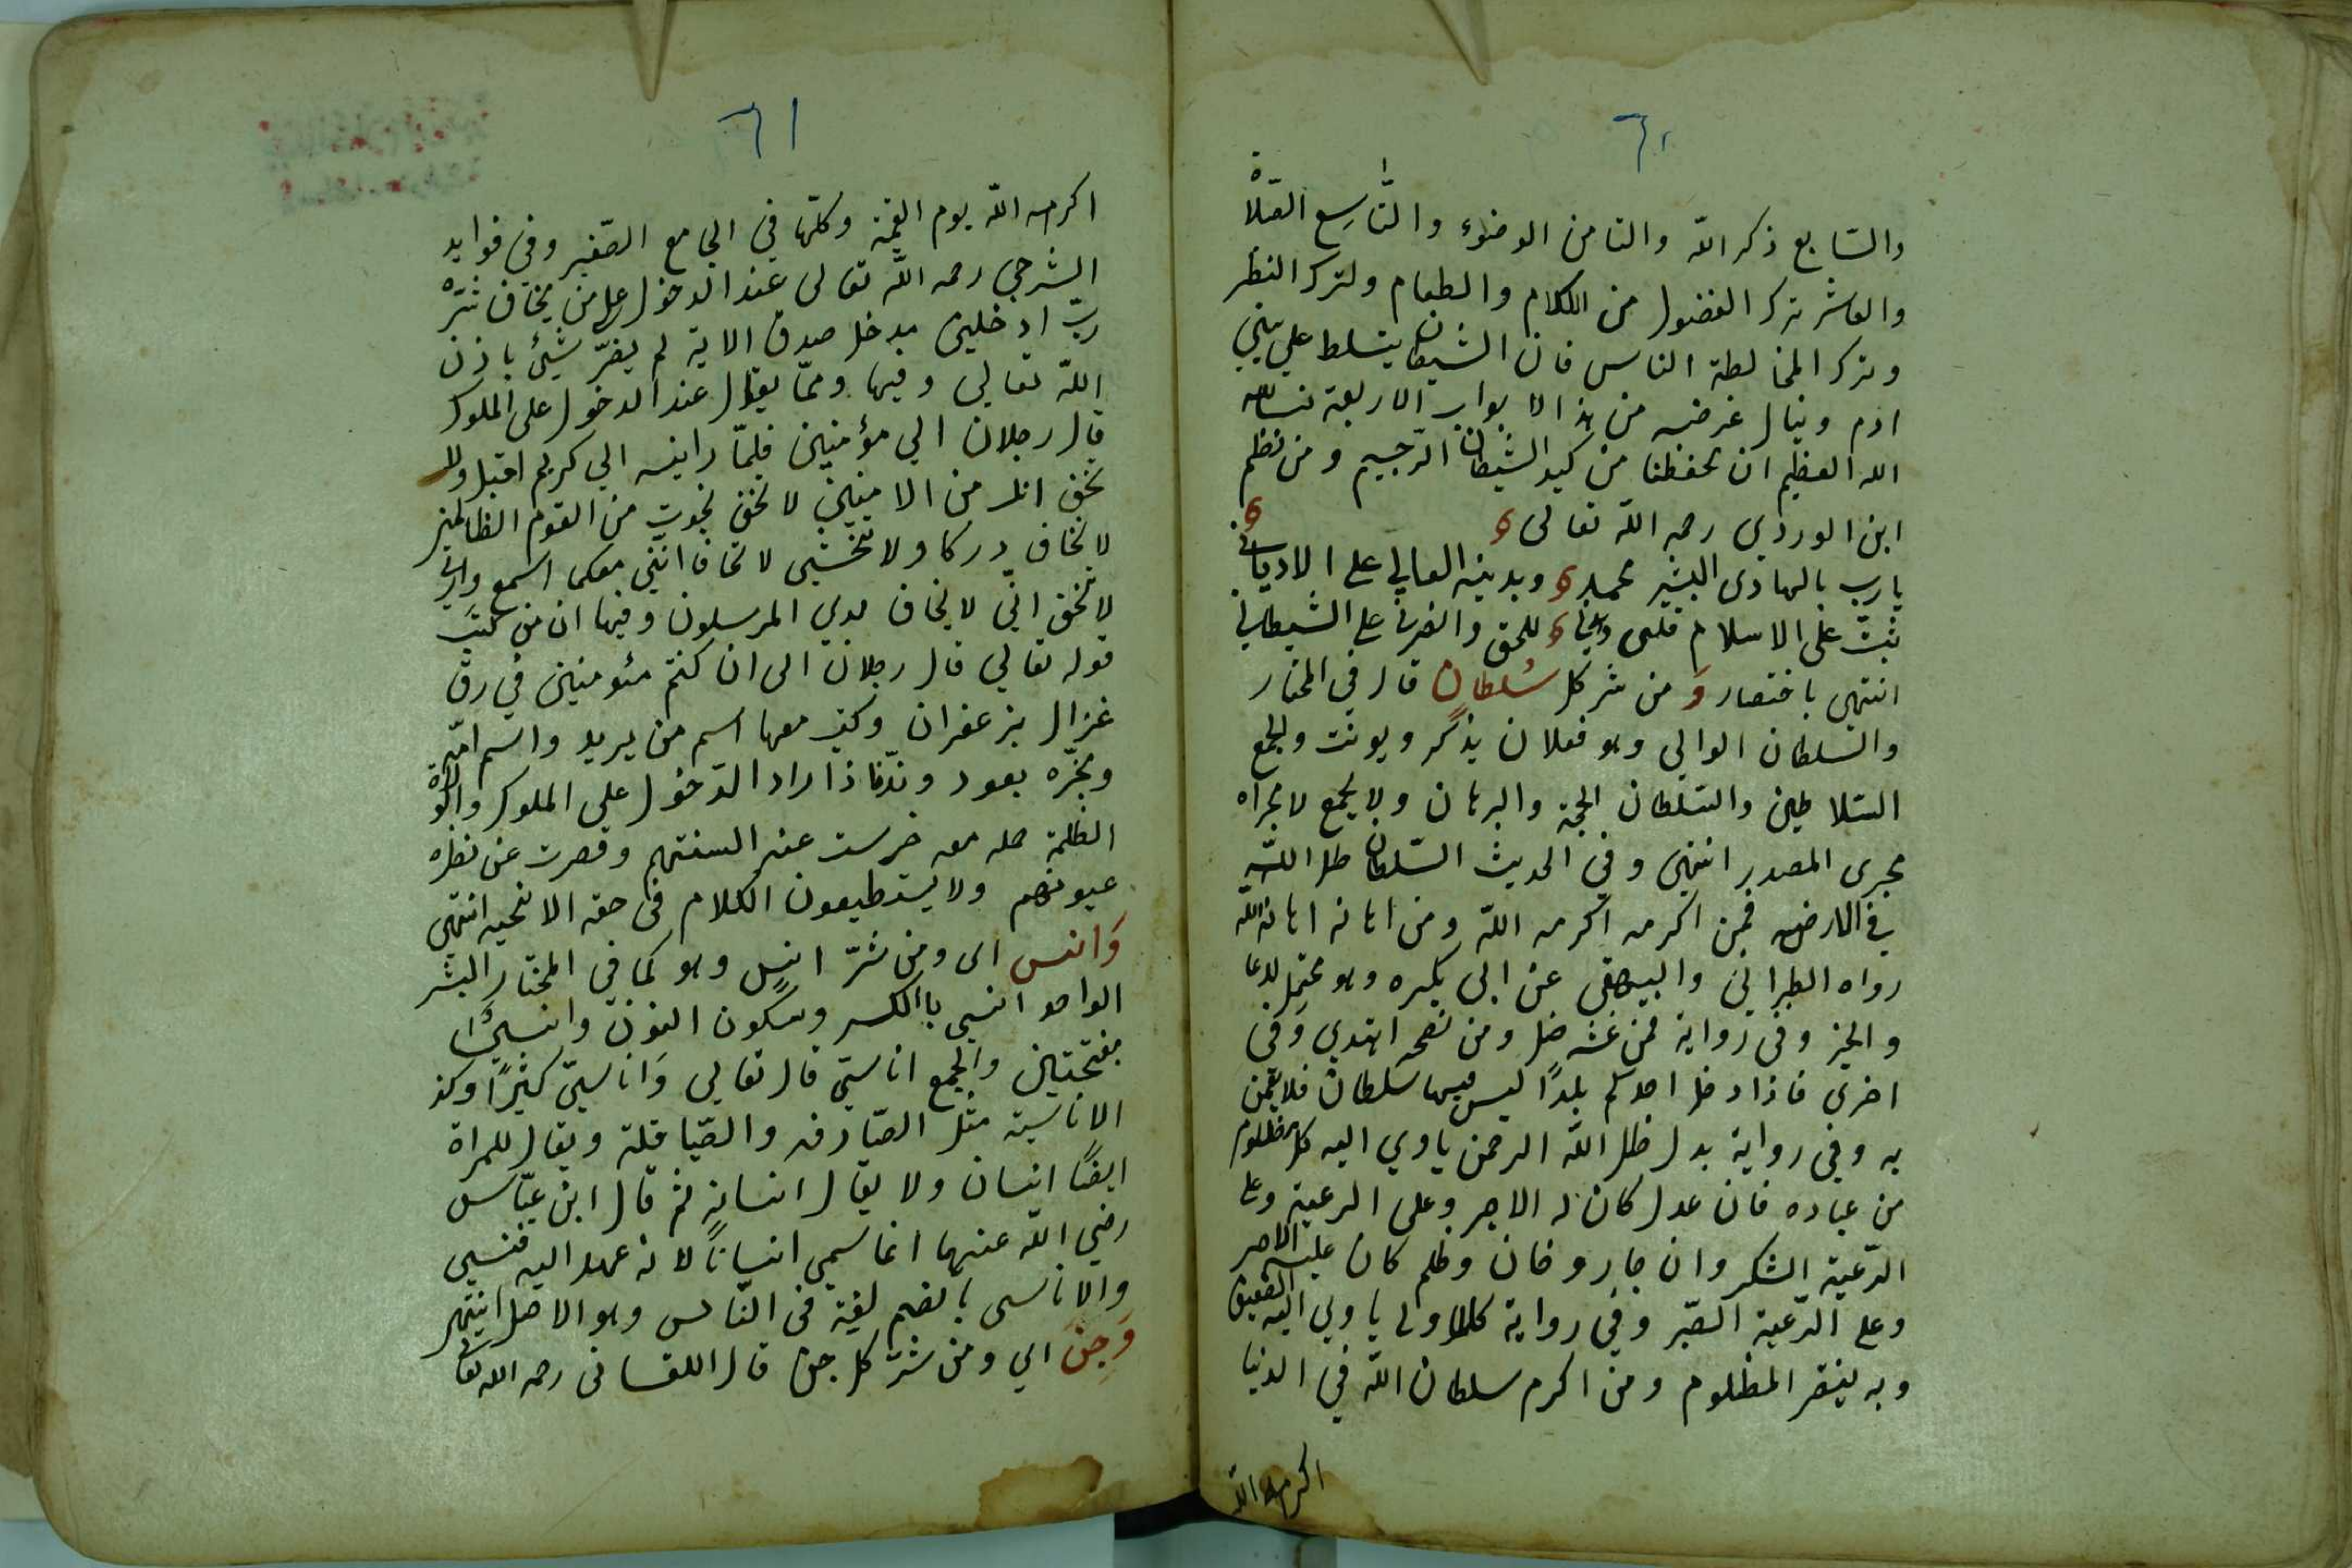 ٦٠
والسّابع ذكر الله والثامن الوضوء والتّاسع الصّلاة
والعاشر ترك الفضول من الكلام والطعام ولترك النظر
وترك المخالطة الناس فان الشيطان يتسلط علي بني
ادم وينال غرضه من هذا الابواب الاربعة نسال
الله العظيم ان يحفظنا من كيد الشيطان الرّجيم ومن نظم
ابن الوردي رحمه الله تعالى
يا رب بالهادى البشير محمد وبدينه العالي على الاديان
ثبّت على الاسلام قلبى للحق وانصرني على الشيطان
انتهى باختصار وَ من شر كل سُلطانٍ قال في المختار
والسّلطان الوالي وهو فعلان يذكّر ويونث والجمع
السّلاطين والسّلطان الحجة والبرهان ولا يجمع لا مجراه
مجرى المصدر انتهى وفي الحديث السّلطان ظل اللّه
في الارض فمن اكرمه اكرمه اللّه ومن اهانه اهانه الله
رواه الطبراني والبيهقى عن ابى بكره وهو محتمل للدعا
والخبر وفى رواية فمن غشه ضل ومن نصحه اهتدي وَفى
اخرى فاذا دخل احدكم بلدًا ليس فيها سلطان فلا يقمن
به وفي رواية بدل ظل اللّه الرحمن ياوي اليه كل مظلوم
من عباده فان عدل كان له الاجر وعلى الرعية وعلى
الرّعية الشكر وان جار وخان وظلم كان عليه الاصر
وعلى الرّعية الصّبر وفي رواية ياوي اليه الضعيف
وبه ينتصر المظلوم ومن اكرم سلطان اللّه في الدنيا
اكرمه الله
٦١
اكرمه اللّه يوم القيمة وكلّها في الجامع الصّغير وفي فوايد
الشرجي رحمه اللّه تعالى عند الدخول على من يخاف شرّه
ربّ ادخلني مدخل صدق الاية لم يضرّ شيئ باذن
اللّه تعالي وفيها وممّا يقال عند الدخول على الملوك
قال رجلان الي مؤمنين فلمّا راينه الي كريم اقبل ولا
تخف انك من الامنين لا تخف نجوت من القوم الظالمين
لا تخاف دركا ولا تخشى لا تخافا انّني معكما اسمع وارى
لا تخف انّي لا يخاف لدي المرسلون وفيها ان من كتب
قوله تعالي قال رجلان الى ان كنتم مئومنين في رق
غزال بزعفران وكتب معها اسم من يريد واسم امّه
وبخّره بعود وندّ فاذا اراد الدّخول على الملوك والولاة
الظلمة حمله معه خرست عنه السنتهم وقصرت عن نظره
عيونهم ولا يستطيعون الكلام في حقه الا انتهى
وَانس اى ومن شرّ انسٍ وهو كما في المختار البشر
الواحد انسي بالكسر وسكون النون وانسيّ
بفتحتين والجمع اناسيّ قال تعالي وَاناسيّ كثيرًا وكذ
الاناسية مثل الصّيارفه والصّياقلة ويقال للمراة
ايضًا انسان ولا يقال انسانة ثم قال ابن عبّاس
رضي اللّه عنهما انما سمي انسانًا لانه عهد اليه فنسى
والاناسى بالضم لغية فى النّاس وهو الاصل انتهى
وَجن اي ومن شر كل جن قال اللقانى رحمه الله تعالى